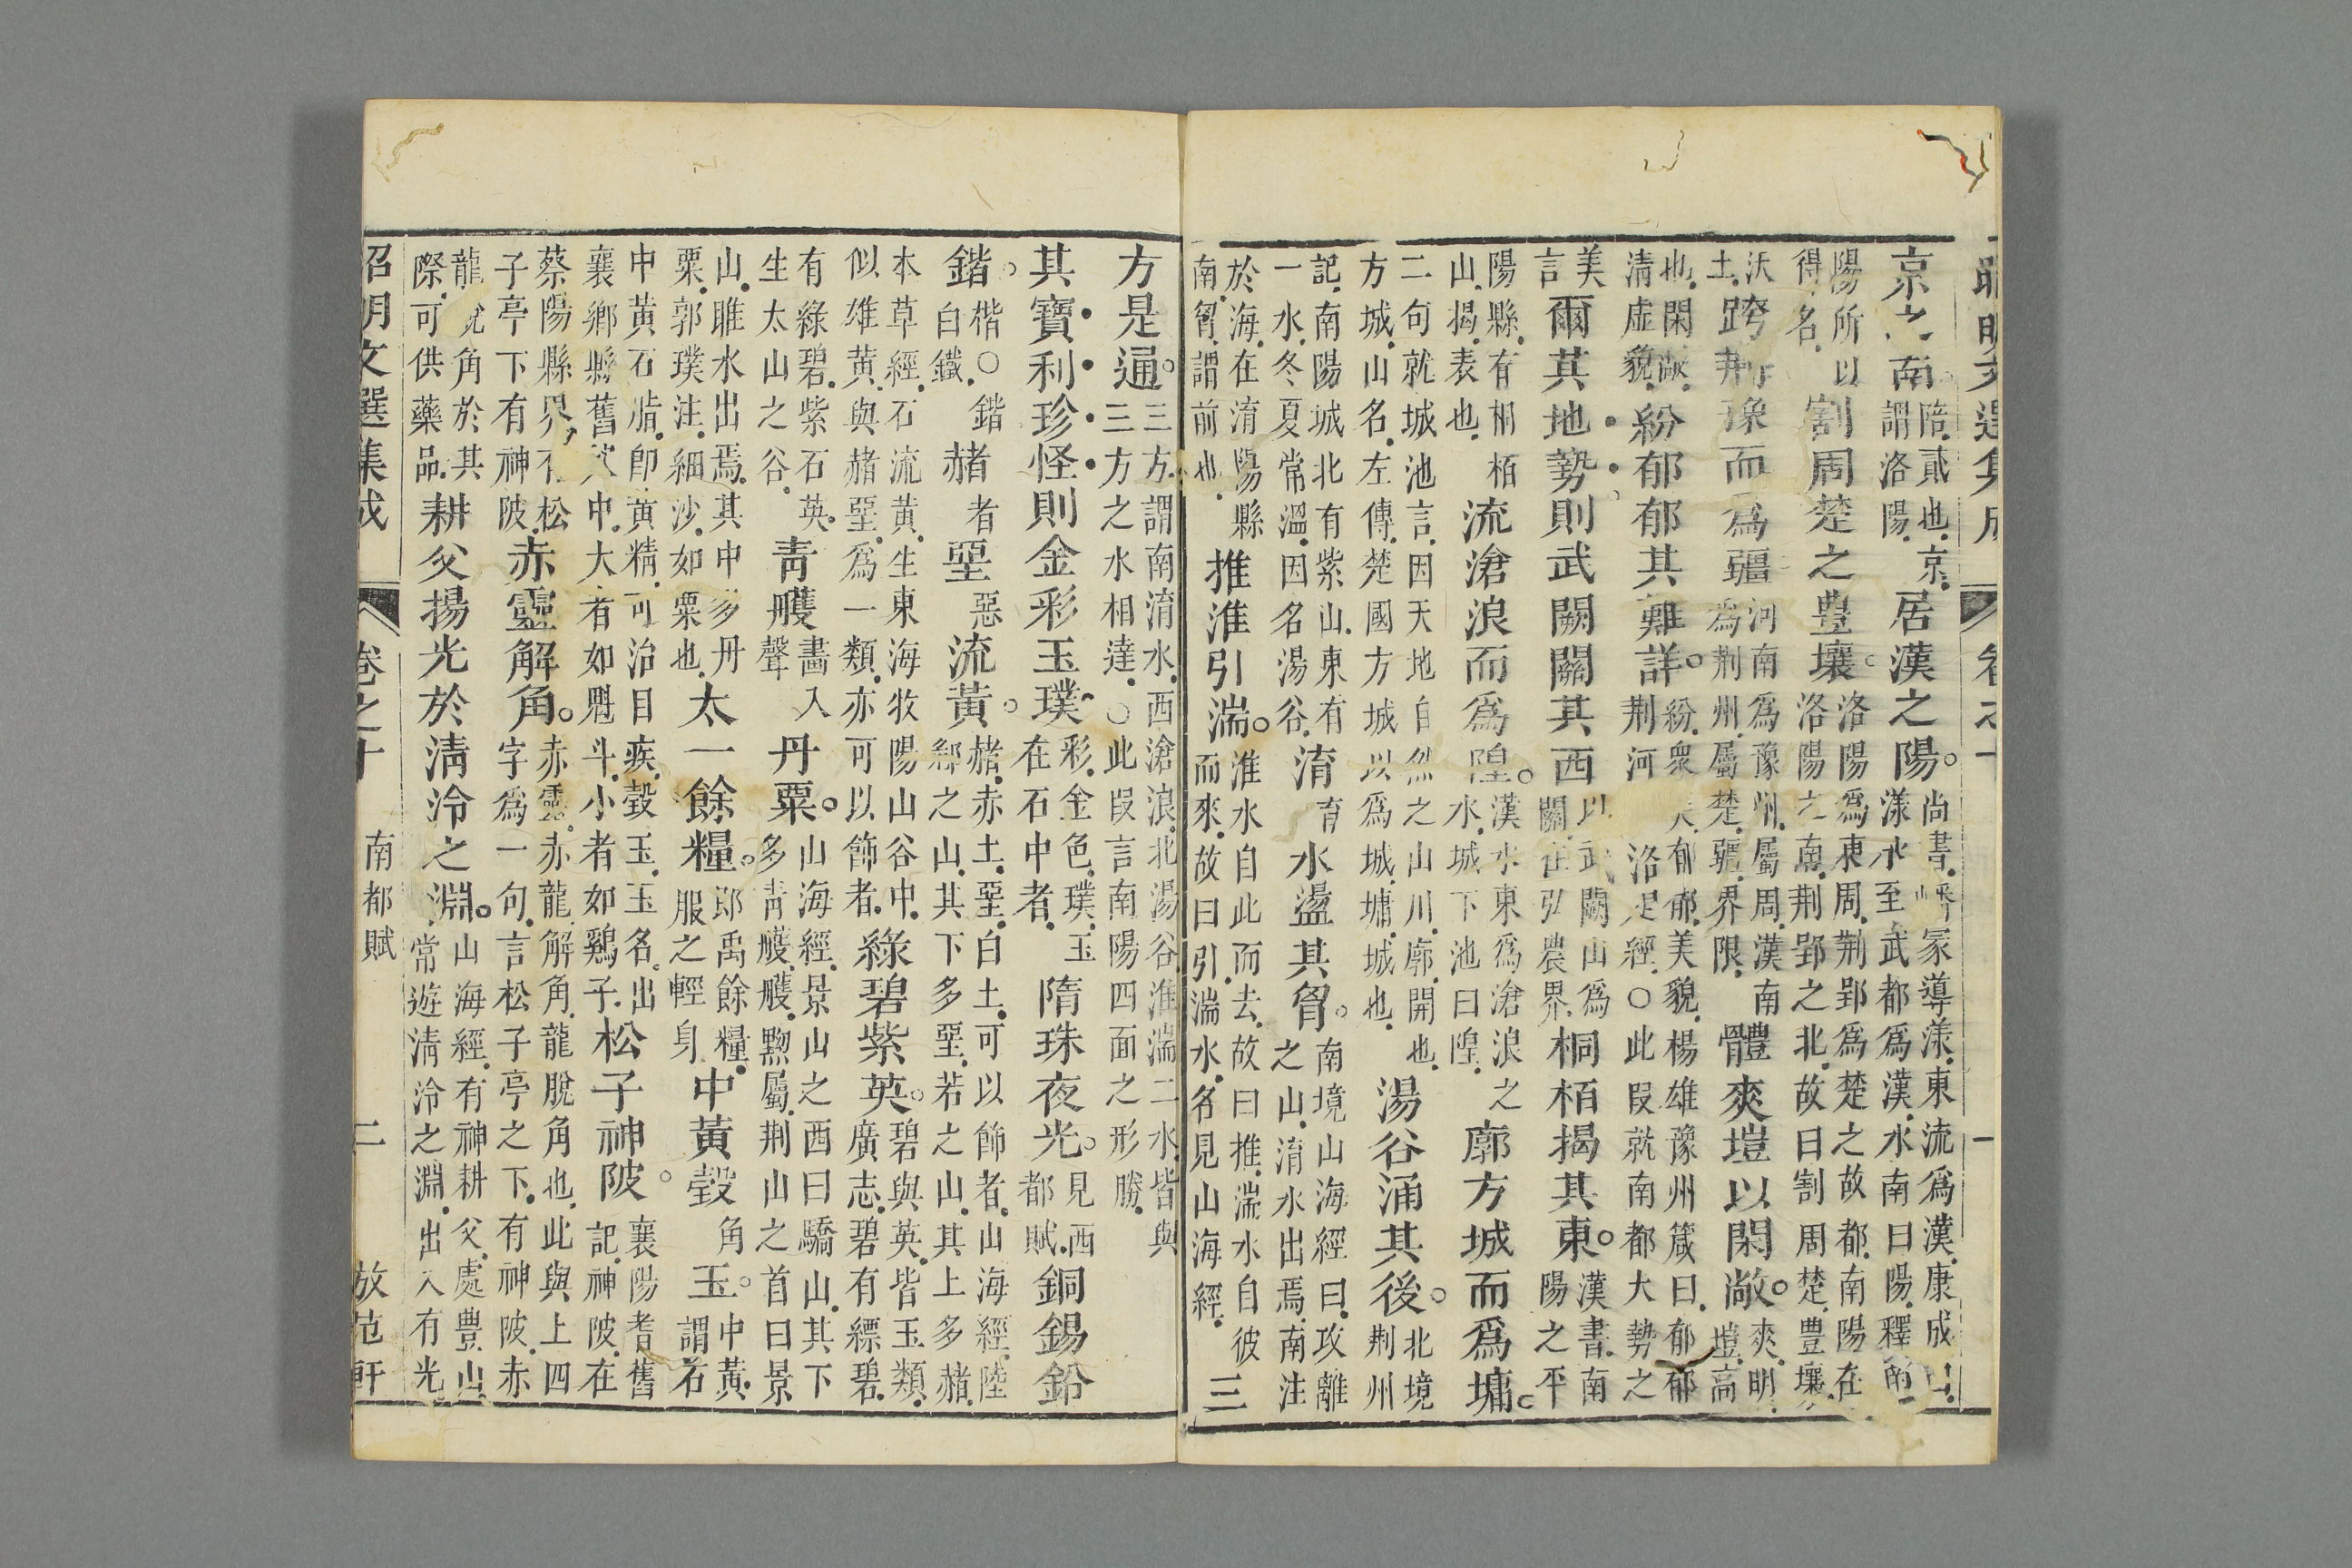 昭明文選集成 卷之十 一
京之南。陪貳也京謂洛陽居漢之陽。尚書嶓冢導漾東流爲漢康成曰漾水至武都爲漢水南曰陽釋南
陽所以得名割周楚之豊壤。洛陽爲東周荆郢爲楚之故都南陽在洛陽之南荆郢之北故曰割周楚豊壤
沃土跨荆豫而爲疆河南爲豫州屬周漢南爲荆州屬楚疆界限體爽塏以閑敞。爽明塏高
也閑敞清虛貌紛郁郁其難詳。紛衆美郁郁美貌楊雄豫州箴曰郁郁荆河洛是經○此段就南都大勢之
美言爾其地勢則武闕關其西以武闕山爲關在弘農界桐栢揭其東。漢書南陽之平
陽縣有桐栢山揭表也流滄浪而爲隍。漢水東爲滄浪之水城下池曰隍廓方城而爲墉。
二句就城池言因天地自然之山川廓開也方城山名左傳楚國方城以爲城墉城也湯谷涌其後。北境荆州
記南陽城北有紫山東有一水冬夏常溫因名湯谷淯育水盪其胷。南境山海經曰攻離之山淯水出焉南注
於海在淯陽縣南胷謂前也推淮引湍。淮水自此而去故曰推湍水自彼而來故曰引湍水名見山海經三
方是通。三方謂南淯水西滄浪北湯谷淮湍二水皆與三方之水相達○此段言南陽四面之形勝
其寶利珍怪則金彩玉璞彩金色璞玉在石中者隋珠夜光。見西都賦銅錫鉛
鍇。楷○鍇白鐵赭者堊惡流黃。赭赤土堊白土可以飾者山海經陸䣝之山其下多堊若之山其上多赭
本草經石流黄生東海牧陽山谷中似雄黄與赭堊爲一類亦可以飾者綠碧紫英。碧與英皆玉類廣志碧有縹碧
有綠碧紫石英生太山之谷青雘畫入聲丹粟。山海經景山之西曰驕山其下多青雘雘黝屬荆山之首曰景
山睢水出焉其中多丹粟郭璞注細沙如粟也太一餘糧。郎禹餘糧服之輕身中黃瑴角玉。中黃謂石
中黃石脂卽黄精可治目疾瑴玉玉名出襄鄉縣舊穴中大者如魁斗小者如鷄子松子神陂。襄陽耆舊記神陂在
蔡陽縣界有松子亭下有神陂赤靈解角。赤靈赤龍解角龍脫角也此與上四字爲一句言松子亭之下有神陂赤
龍脫角於其際可供藥品耕父揚光於淸泠之淵。山海經有神耕父處豊山常遊淸泠之淵出入有光
昭明文選集成 卷之十 南都賦 二 放范軒